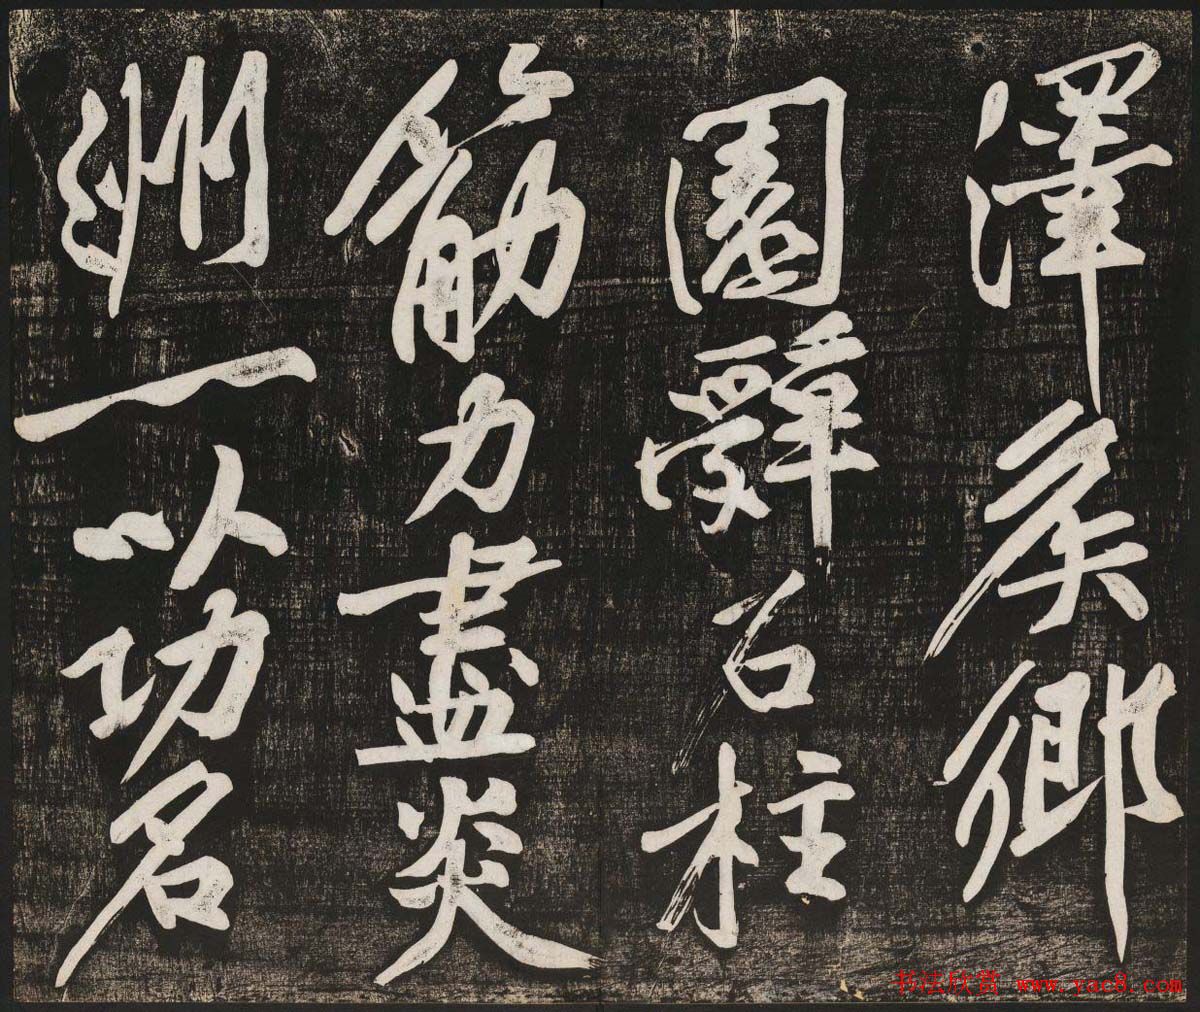 澤侯鄉
園辭石柱
筋力盡炎
洲一以功名
书法欣赏 www.yac8.com